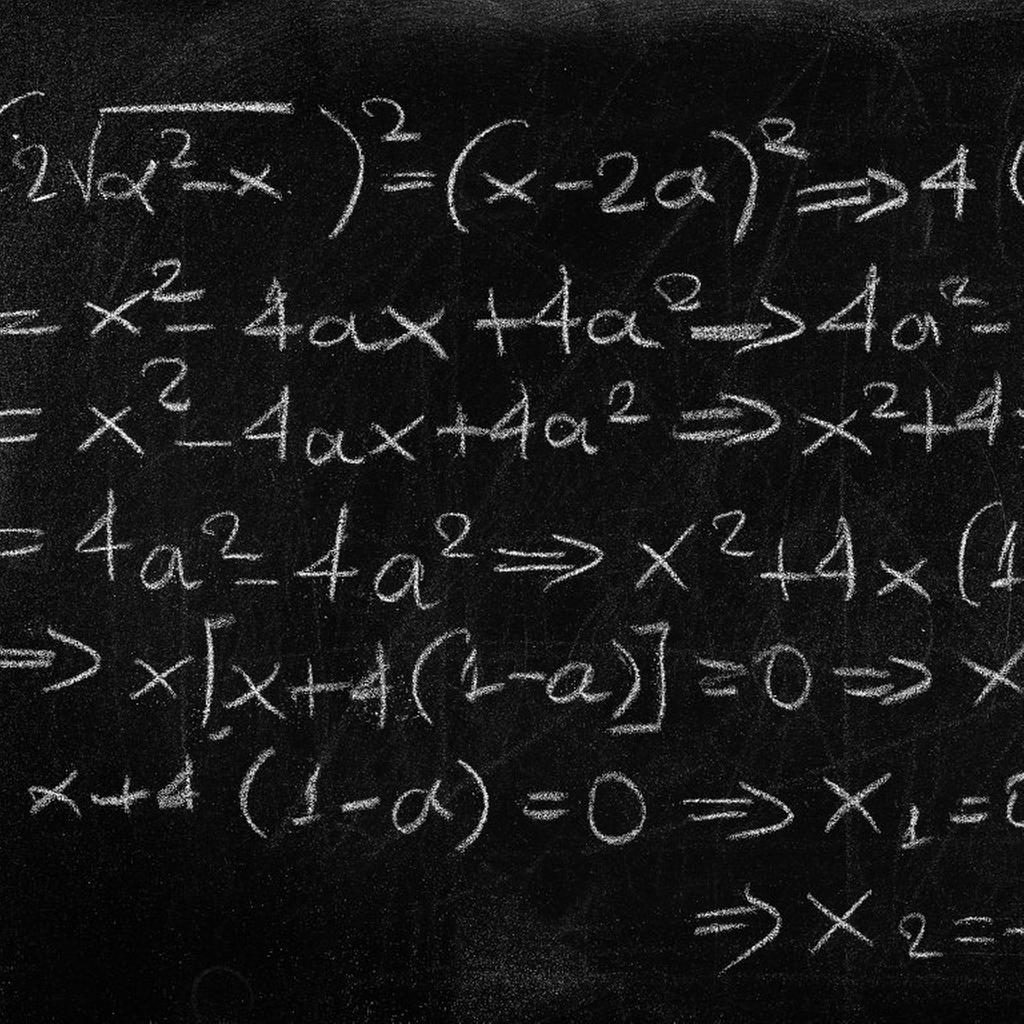 (2√(a²-x))² = (x-2a)² ⇒ 4(
= x² - 4ax + 4a² ⇒ 4a² -
= x² - 4ax + 4a² ⇒ x² + 4
= 4a² - 4a² ⇒ x² + 4x(1
⇒ x[x+4(1-a)] = 0 ⇒ x
x+4(1-a) = 0 ⇒ x₁ = 0
⇒ x₂ = -